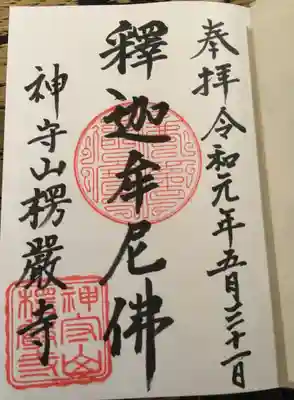 奉拝令和元年五月三十一日
釋迦牟尼佛
神守山楞嚴寺